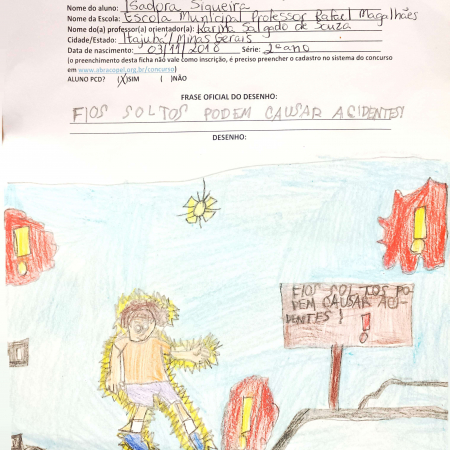 Nome do aluno: Isadora Siqueira
Nome da Escola: Escola Municipal Professor Rafael Magalhães
Nome do(a) professor(a) orientador(a): Karina Salgado de Souza
Cidade/Estado: Itajubá/Minas Gerais
Data de nascimento: 03/11/2010 Série: 2º ano
(o preenchimento desta ficha não vale como inscrição, é preciso preencher o cadastro no sistema do concurso
em www.abracopel.org.br/concurso)
ALUNO PCD? (X)SIM ( )NÃO
FRASE OFICIAL DO DESENHO:
FIOS SOLTOS PODEM CAUSAR ACIDENTES!
DESENHO:
FIOS SOLTOS PO-
DEM CAUSAR ACI-
DENTES!